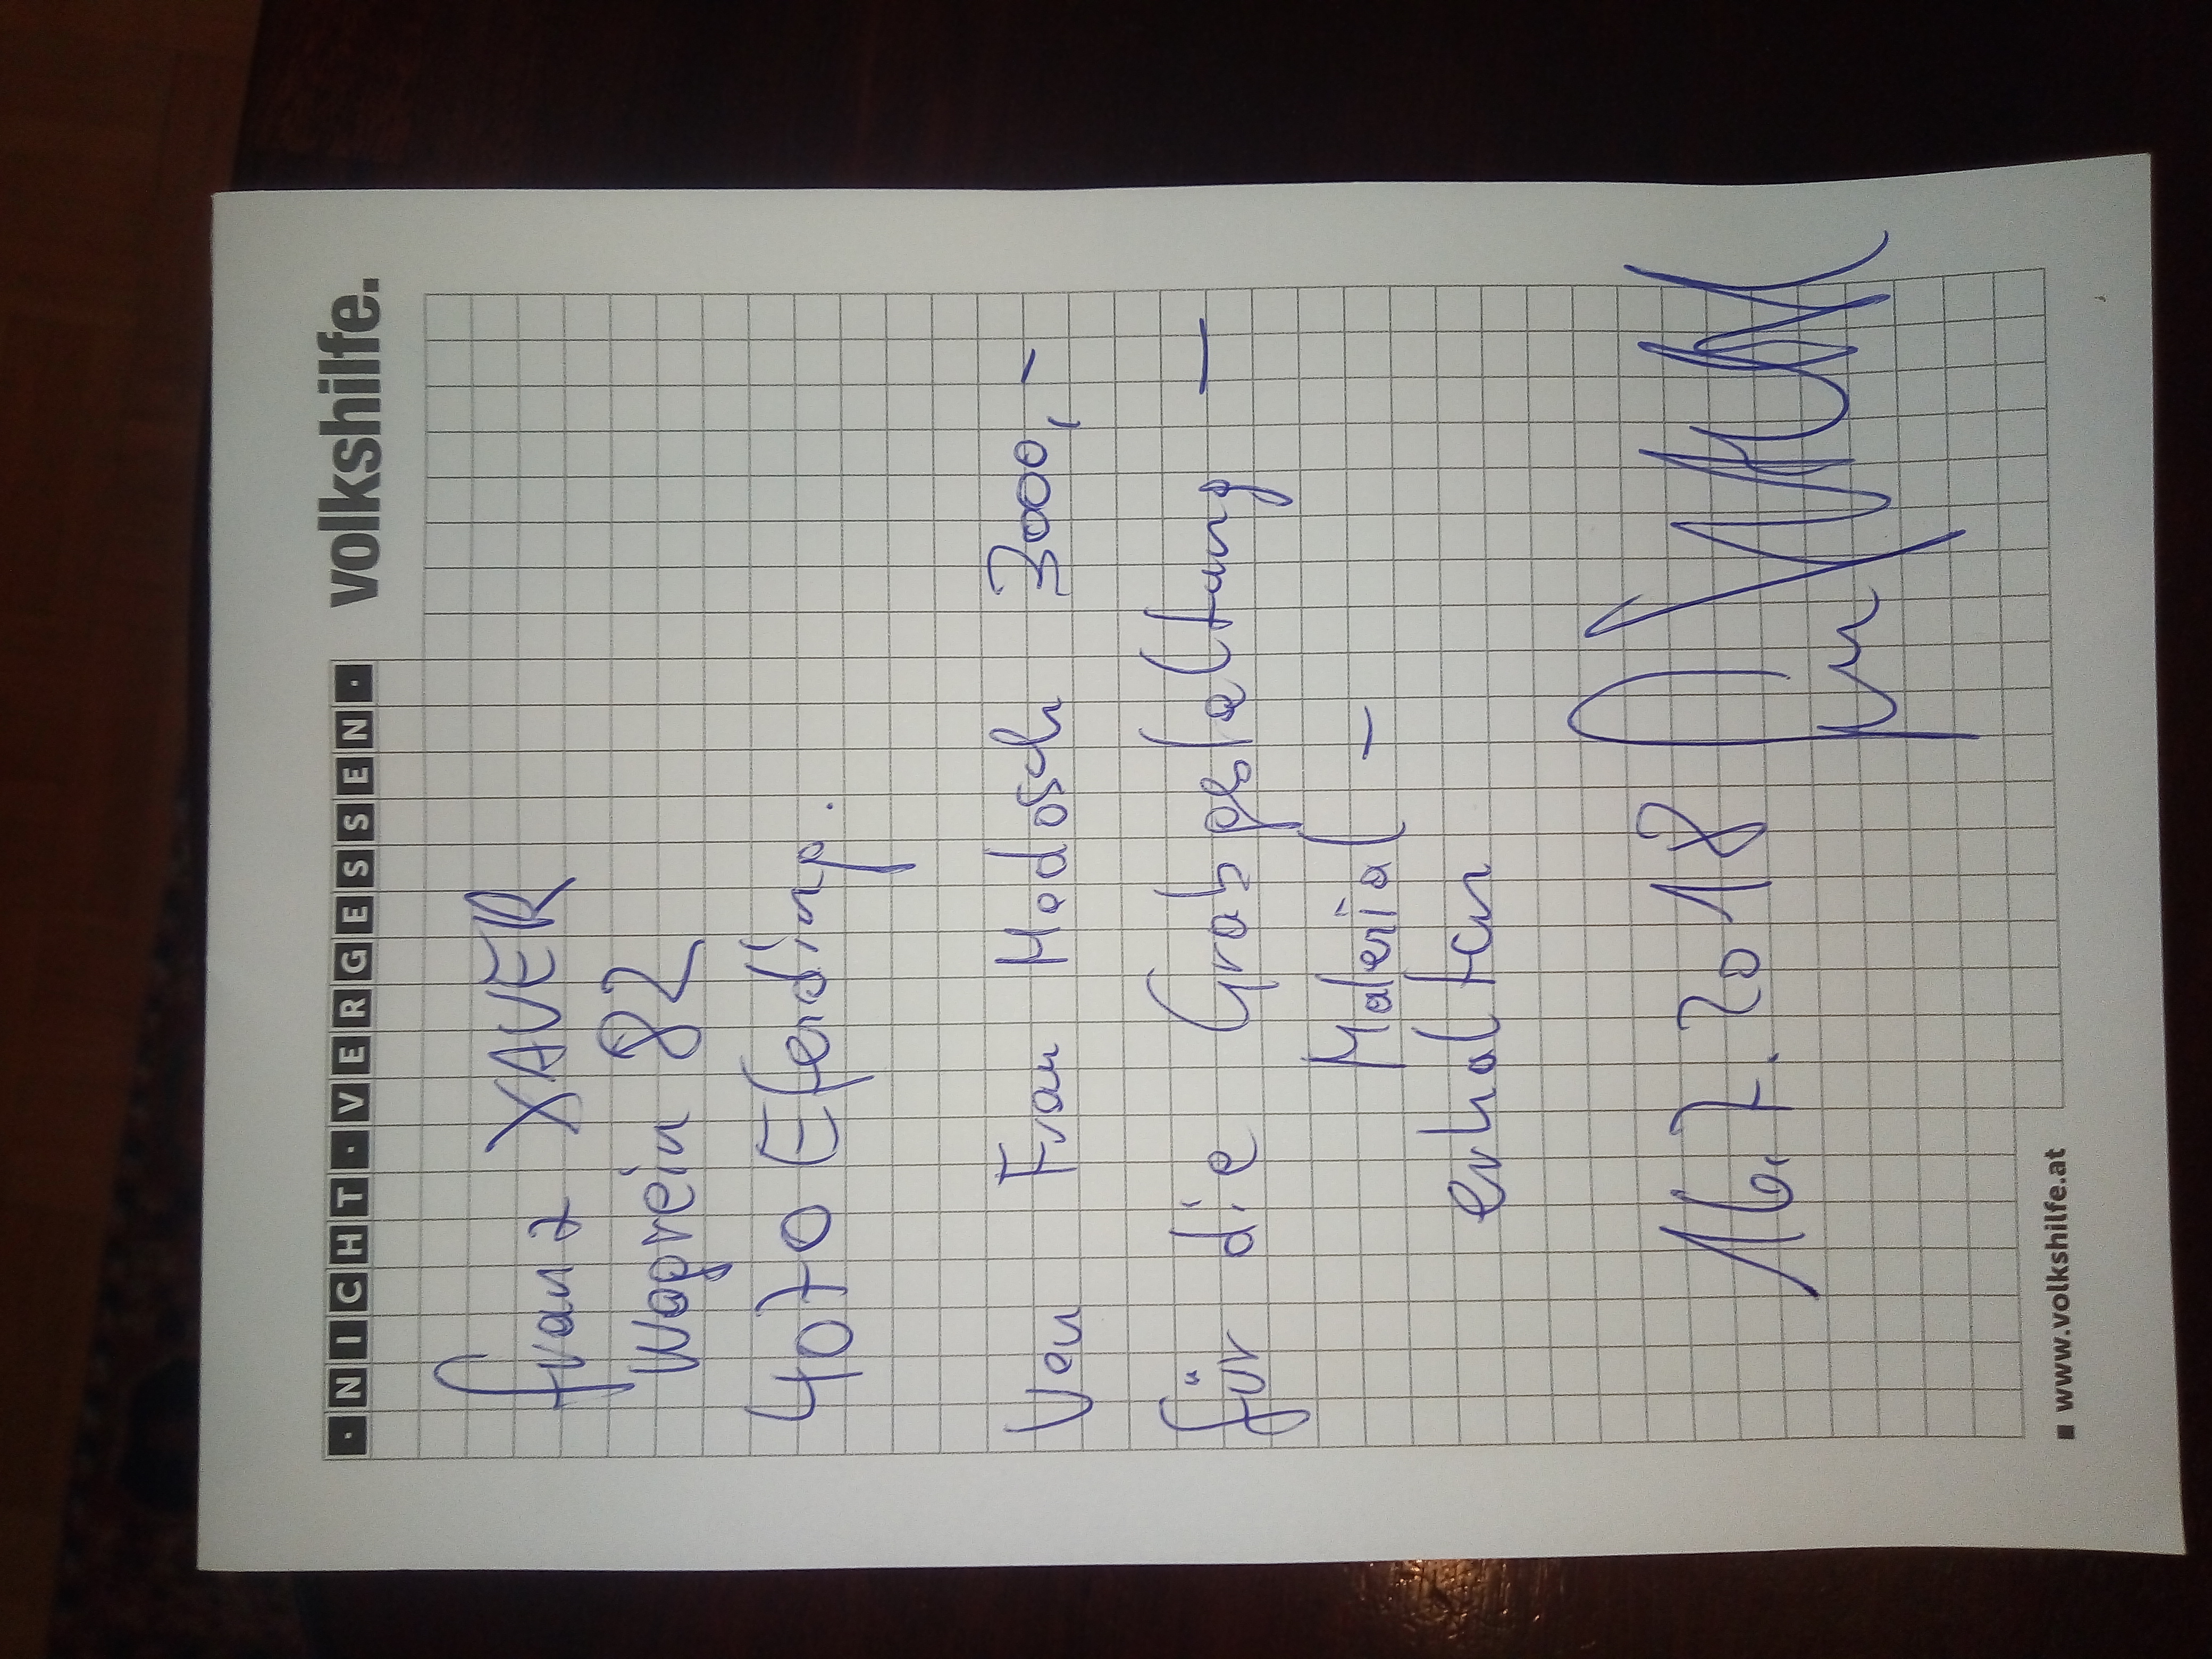 · NICHT · VERGESSEN · volkshilfe.
franz XAVER
Wagrein 82
4070 Eferding.
Von Frau Hadosch 3000,-
für die Grabgestaltung —
Material —
erhalten
16.7.2018
■ www.volkshilfe.at